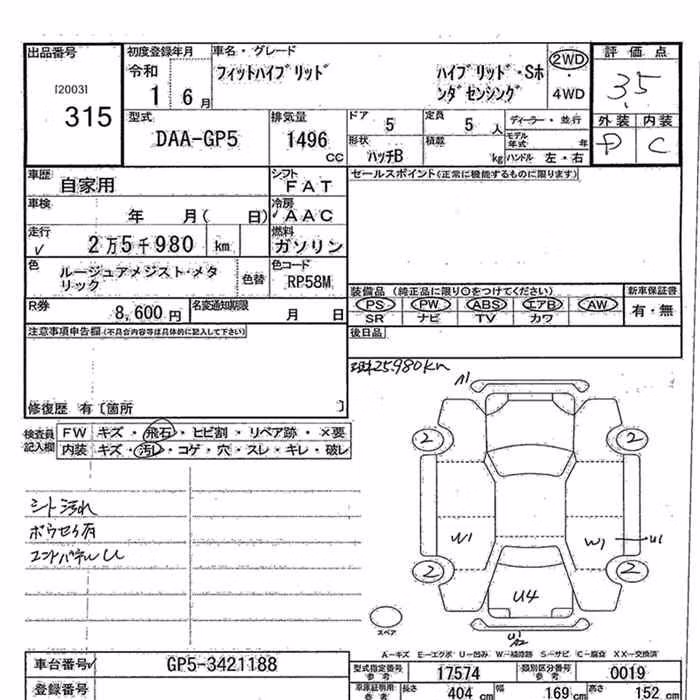 出品番号
[2003]
315
初度登録年月
令和
1 6月
車名・グレード
フィットハイブリッド ハイブリッド・Sホ
ンダセンシング
2WD
・
4WD
評価点
3.5
外装 内装
D C
型式
DAA-GP5
排気量
1496
cc
ドア
5
定員
5人
形状
ハッチB
積載
kg
ディーラー・並行
モデル
年式 年
ハンドル 左・右
車歴
自家用
シフト
FAT
車検
年 月( 日)
冷房
AAC
走行
2万5千980 km
燃料
ガソリン
色
ルージュアメジスト・メタ
リック
色替
色コード
RP58M
R券
8,600円
名変通知期限
月 日
セールスポイント(正常に機能するものに限ります)
装備品(純正品に限り○をつけてください)
PS PW ABS エアB AW
SR ナビ TV カワ
新車保証書
有・無
後日品
注意事項申告欄(不具合内容等は具体的に記入して下さい)
修復歴 有〔箇所 〕
検査員
記入欄
FW キズ・飛石・ヒビ割・リペア跡・×要
内装 キズ・汚レ・コゲ・穴・スレ・キレ・破レ
シート汚れ
ボウセイ有
エンドパネルU
25,980km
A1
2
2
W1
W1
U1
2
2
U4
U1
A2
スペア
A―キズ E―エクボ U―凹み W―補修跡 S―サビ C―腐食 XX―交換済
車台番号
GP5-3421188
登録番号
型式指定番号
参考
17574
類別区分番号
参考
0019
車庫証明用
参考
長さ
404 cm
幅
169 cm
高さ
152 cm